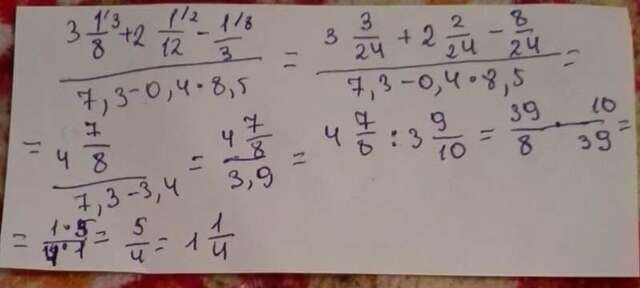 3 1/8 + 2 1/12 - 1/3 / 7,3-0,4·8,5 = 3 3/24 + 2 2/24 - 8/24 / 7,3-0,4·8,5 =
= 4 7/8 / 7,3-3,4 = 4 7/8 / 3,9 = 4 7/8 : 3 9/10 = 39/8 · 10/39 =
= 1·5/4·1 = 5/4 = 1 1/4